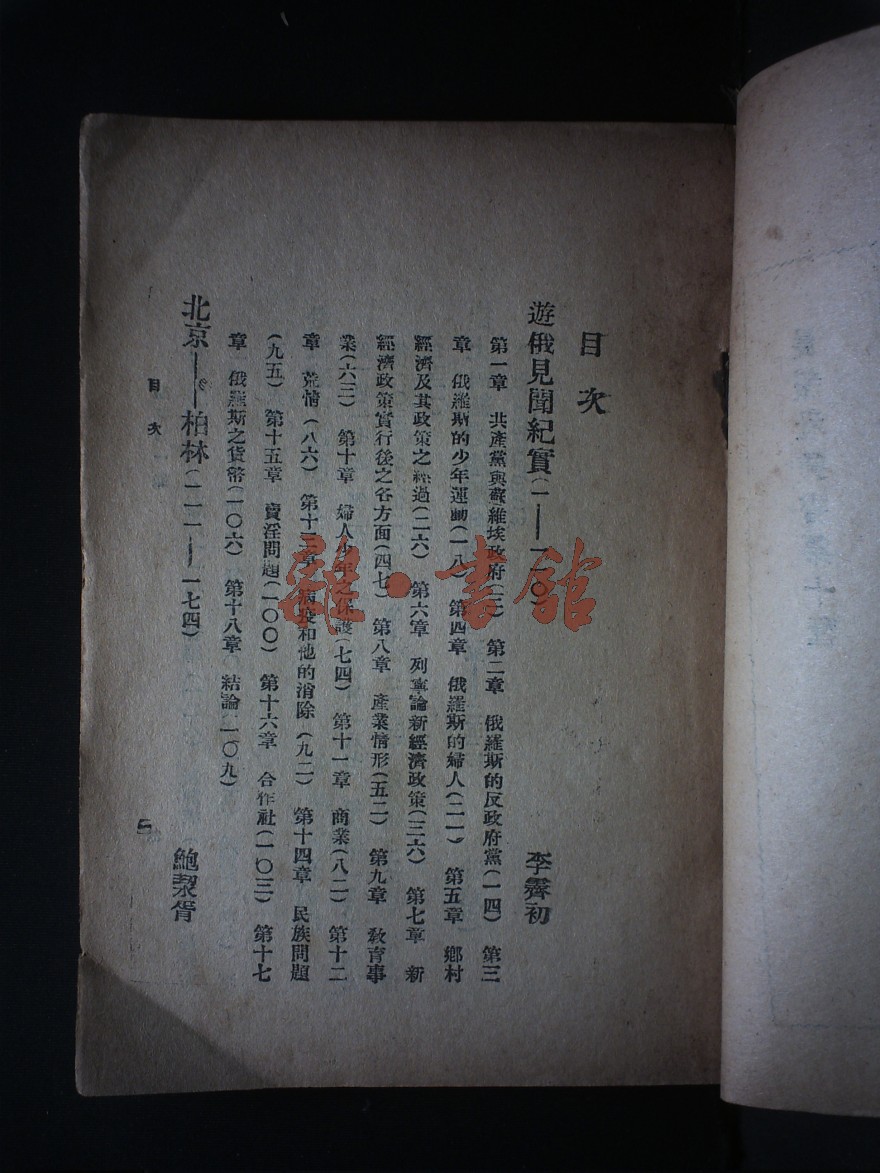 目次
遊俄見聞紀實(一——一一〇) 李霽初
第一章 共產黨與蘇維埃政府(三) 第二章 俄羅斯的反政府黨(一四) 第三
章 俄羅斯的少年運動(一八) 第四章 俄羅斯的婦人(二一) 第五章 鄉村
經濟及其政策之經過(二六) 第六章 列寧論新經濟政策(三六) 第七章 新
經濟政策實行後之各方面(四七) 第八章 產業情形(五二) 第九章 教育事
業(六三) 第十章 婦人少年之保護(七四) 第十一章 商業(八二) 第十二
章 荒情(八六) 第十三章 病疫和他的消除(九二) 第十四章 民族問題
(九五) 第十五章 賣淫問題(一〇〇) 第十六章 合作社(一〇三) 第十七
章 俄羅斯之貨幣(一〇六) 第十八章 結論(一〇九)
北京——柏林(一一一——一七四) 鮑胥
目次
雜·書館